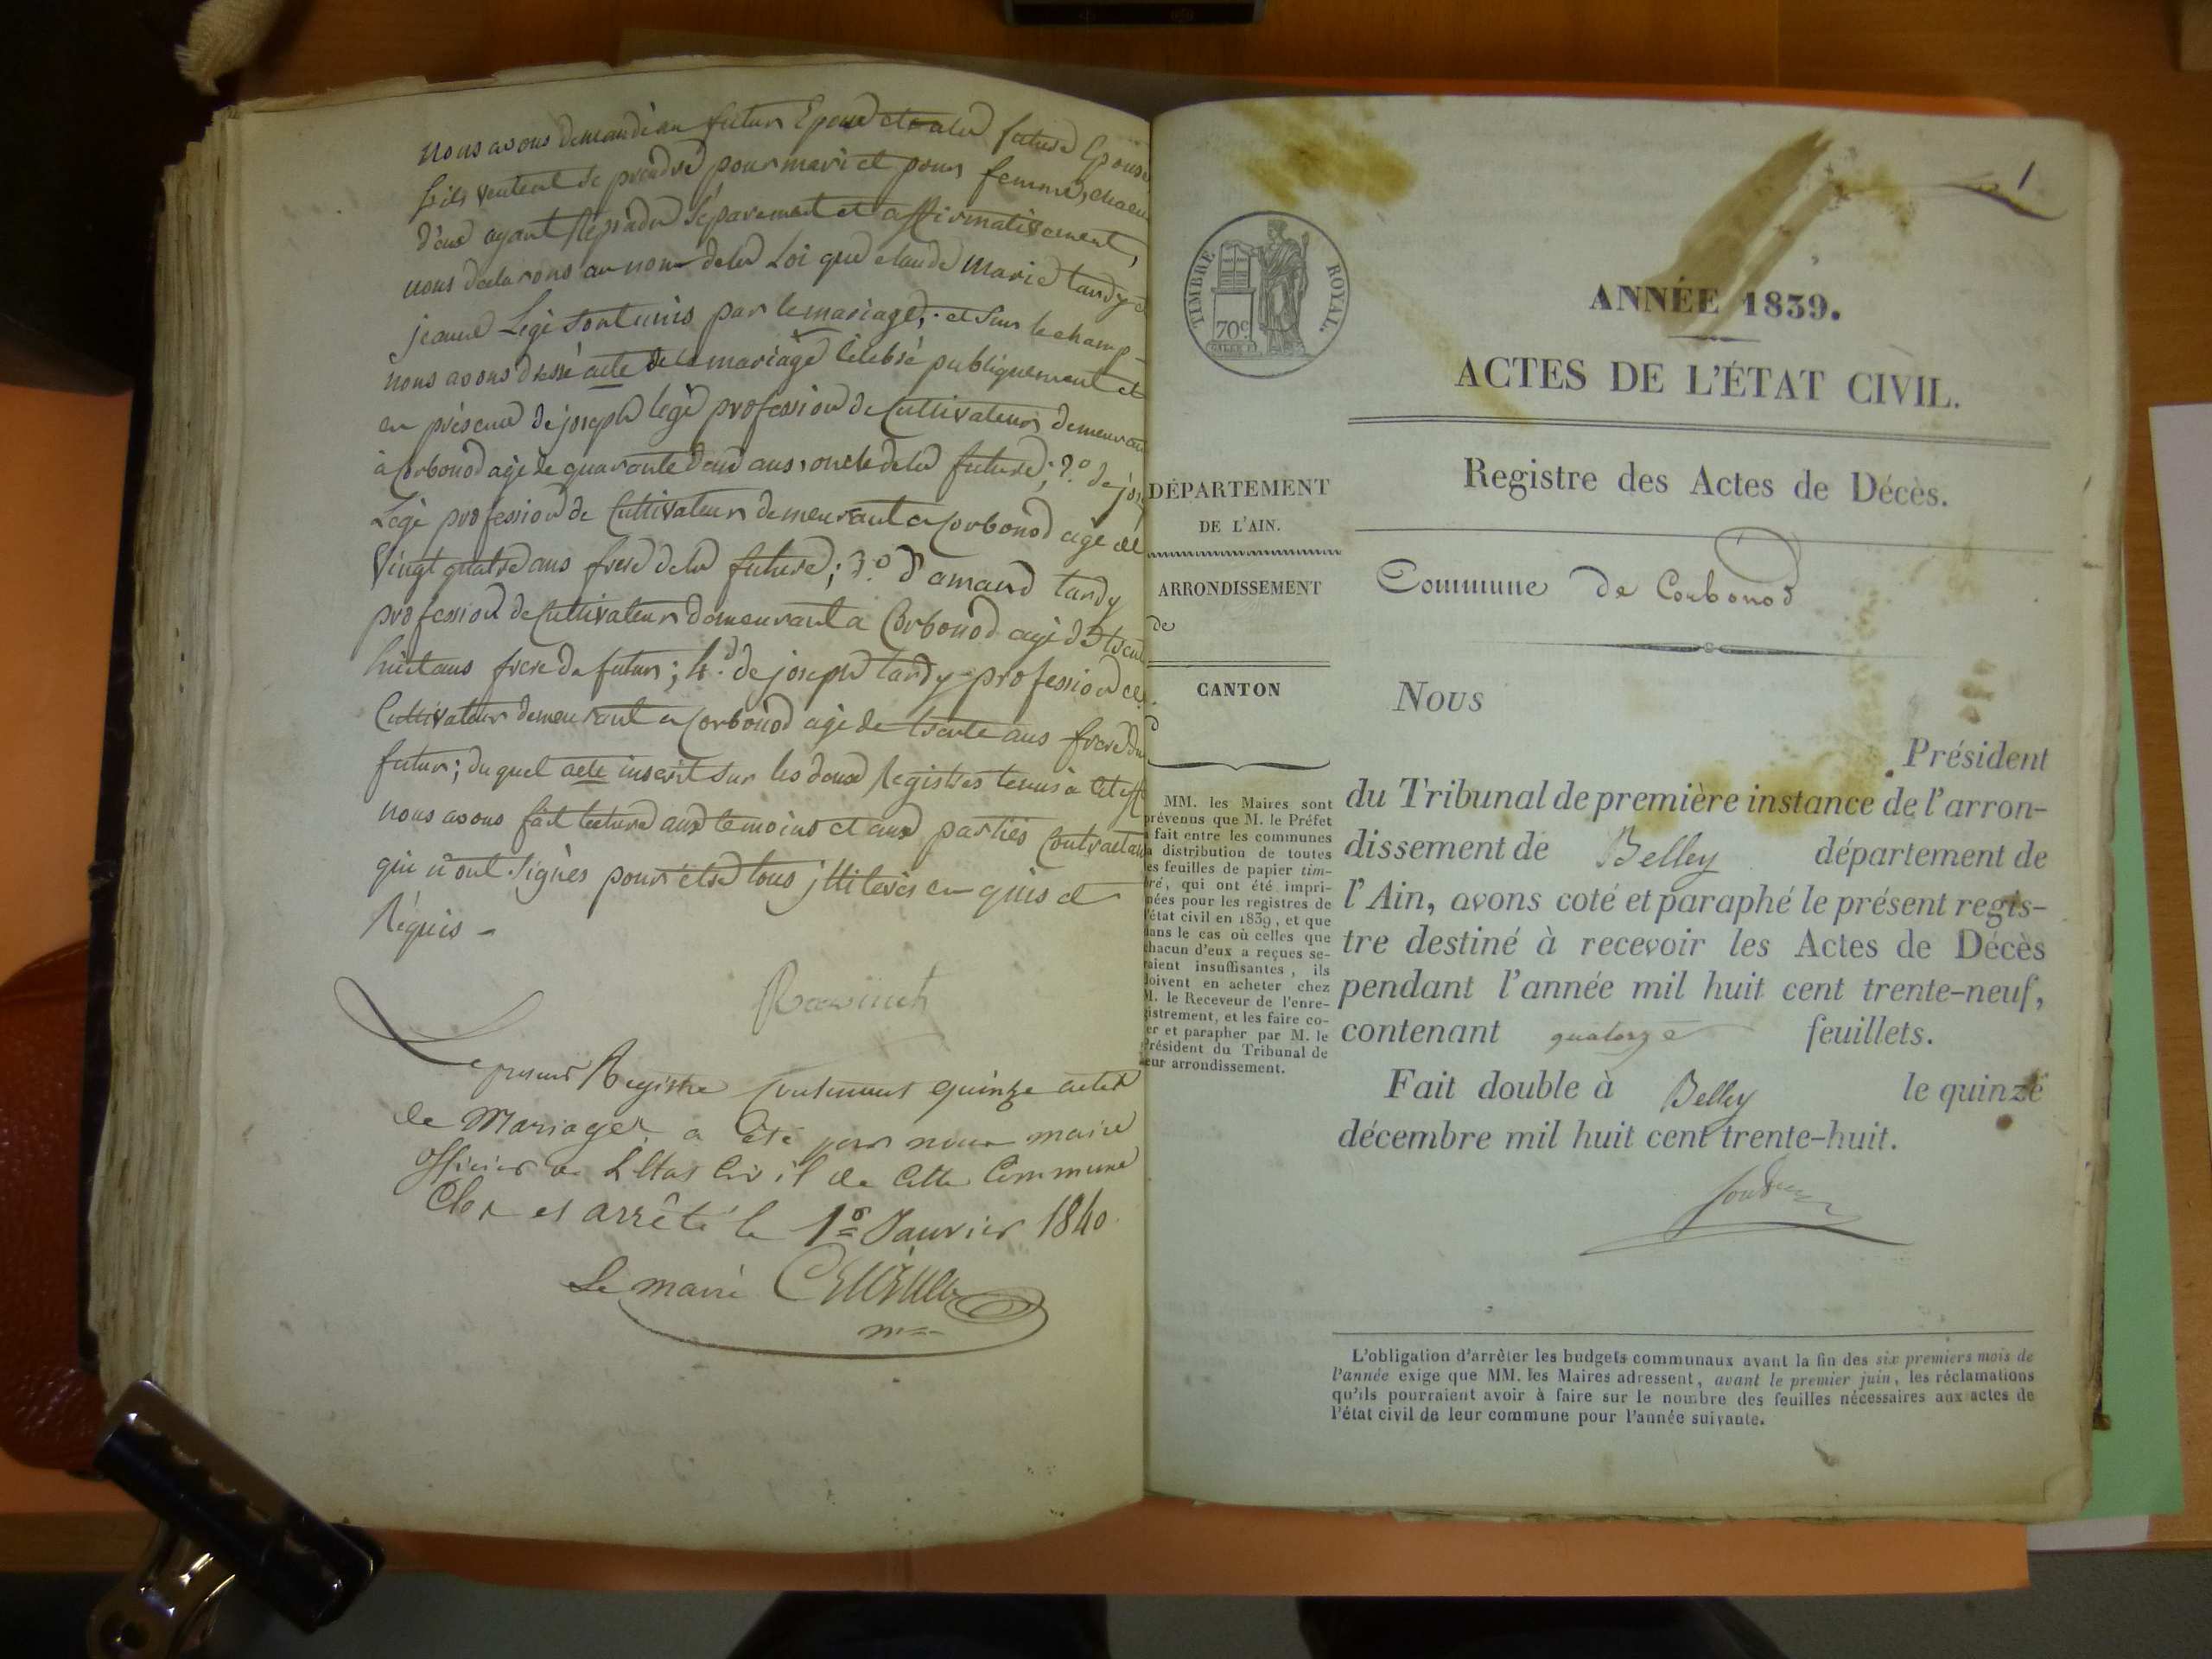 nous avons demandé au futur Epoux et a la future Epouse
s'ils veulent se prendre pour mari et pour femme, chacun
d'eux ayant Répondu séparement et affirmativement,
nous declarons au nom de la Loi que claude Marie tardy
jeanne Legè sont unis par le mariage; et sur le champ
nous avons dressé acte de ce mariage célébré publiquement et
en présence de joseph legè profession de Cultivateur demeurant
à Corbonod agé de quarante deux ans, oncle de la future; 2.º de
Legè profession de Cultivateur demeurant a Corbonod agé de
vingt quatre ans frere de la future; 3.º d'amand tardy
profession de Cultivateur demeurant a Corbonod agé de
huit ans frere du futur; 4.º de joseph tardy profession de
Cultivateur demeurant a Corbonod agé de trente ans frere du
futur; duquel acte inscrit sur les doux Registres tenus à cet
nous avons fait lecture aux temoins et aux parties
qui n'ont signés pour etre tous illiterés en quis et
Réquis -
Le présent Registre contenant quinze actes
de Mariages a été par nous maire
officier de l'Etat Civil de cette Commune
Clos et arrêté le 1er Janvier 1840.
Le maire
1
TIMBRE ROYAL.
70c
ANNÉE 1839.
ACTES DE L'ÉTAT CIVIL.
Registre des Actes de Décès.
Commune de Corbonod
DÉPARTEMENT
DE L'AIN.
ARRONDISSEMENT
de
CANTON
d
MM. les Maires sont
prévenus que M. le Préfet
a fait entre les communes
la distribution de toutes
les feuilles de papier tim-
bré, qui ont été impri-
mées pour les registres de
l'état civil en 1839, et que
dans le cas où celles que
chacun d'eux a reçues se-
raient insuffisantes, ils
doivent en acheter chez
M. le Receveur de l'enre-
gistrement, et les faire co-
ter et parapher par M. le
Président du Tribunal de
leur arrondissement.
Nous
Président
du Tribunal de première instance de l'arron-
dissement de Belley département de
l'Ain, avons coté et paraphé le présent regis-
tre destiné à recevoir les Actes de Décès
pendant l'année mil huit cent trente-neuf,
contenant quatorze feuillets.
Fait double à Belley le quinze
décembre mil huit cent trente-huit.
L'obligation d'arrêter les budgets communaux avant la fin des six premiers mois de
l'année exige que MM. les Maires adressent, avant le premier juin, les réclamations
qu'ils pourraient avoir à faire sur le nombre des feuilles nécessaires aux actes de
l'état civil de leur commune pour l'année suivante.